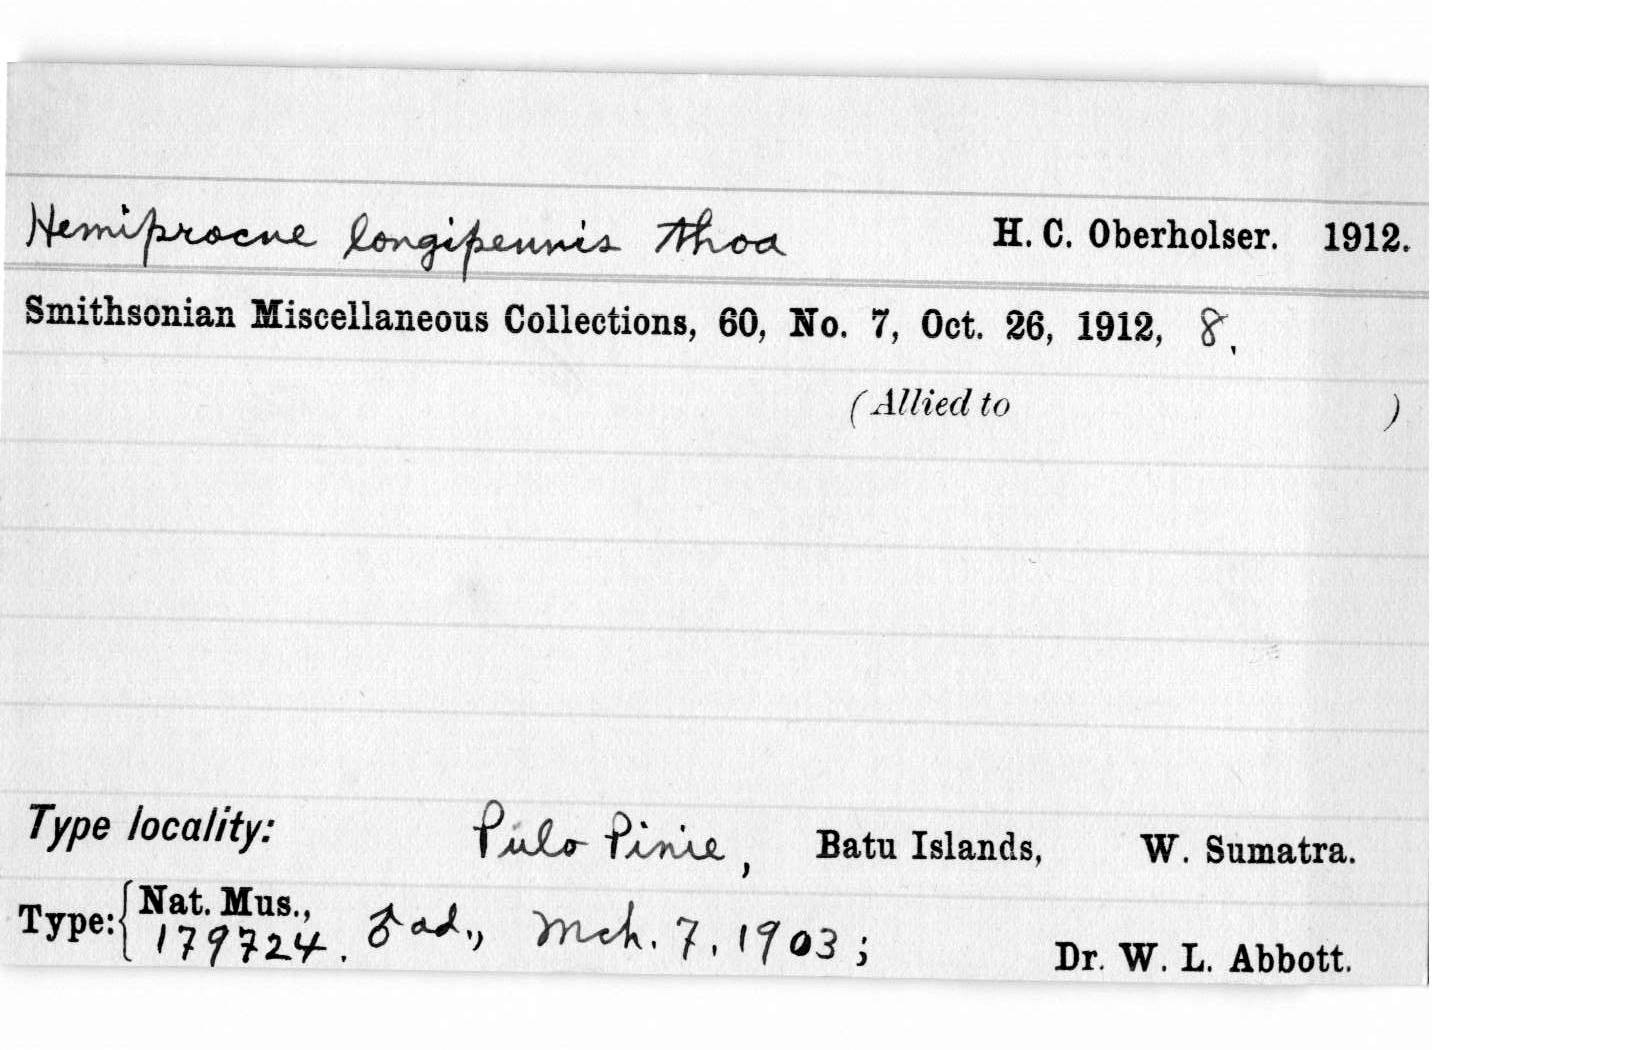 Hemiprocne longipennis thoa H. C. Oberholser. 1912.
Smithsonian Miscellaneous Collections, 60, No. 7, Oct. 26, 1912, 8.
(Allied to )
Type locality: Pulo Pinie, Batu Islands, W. Sumatra.
Type: { Nat. Mus.,
179724. ♂ ad., Mch. 7, 1903; Dr. W. L. Abbott.